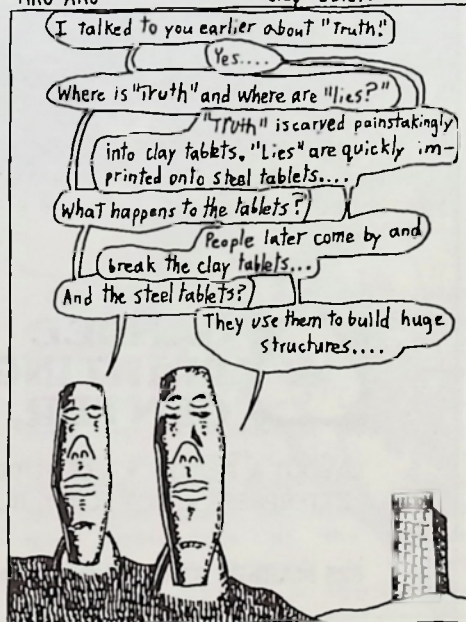 I talked to you earlier about "Truth."
Yes....
Where is "Truth" and where are "lies?"
"Truth" is carved painstakingly
into clay tablets. "Lies" are quickly im-
printed onto steel tablets....
What happens to the tablets?
People later come by and
break the clay tablets...
And the steel tablets?
They use them to build huge
structures....